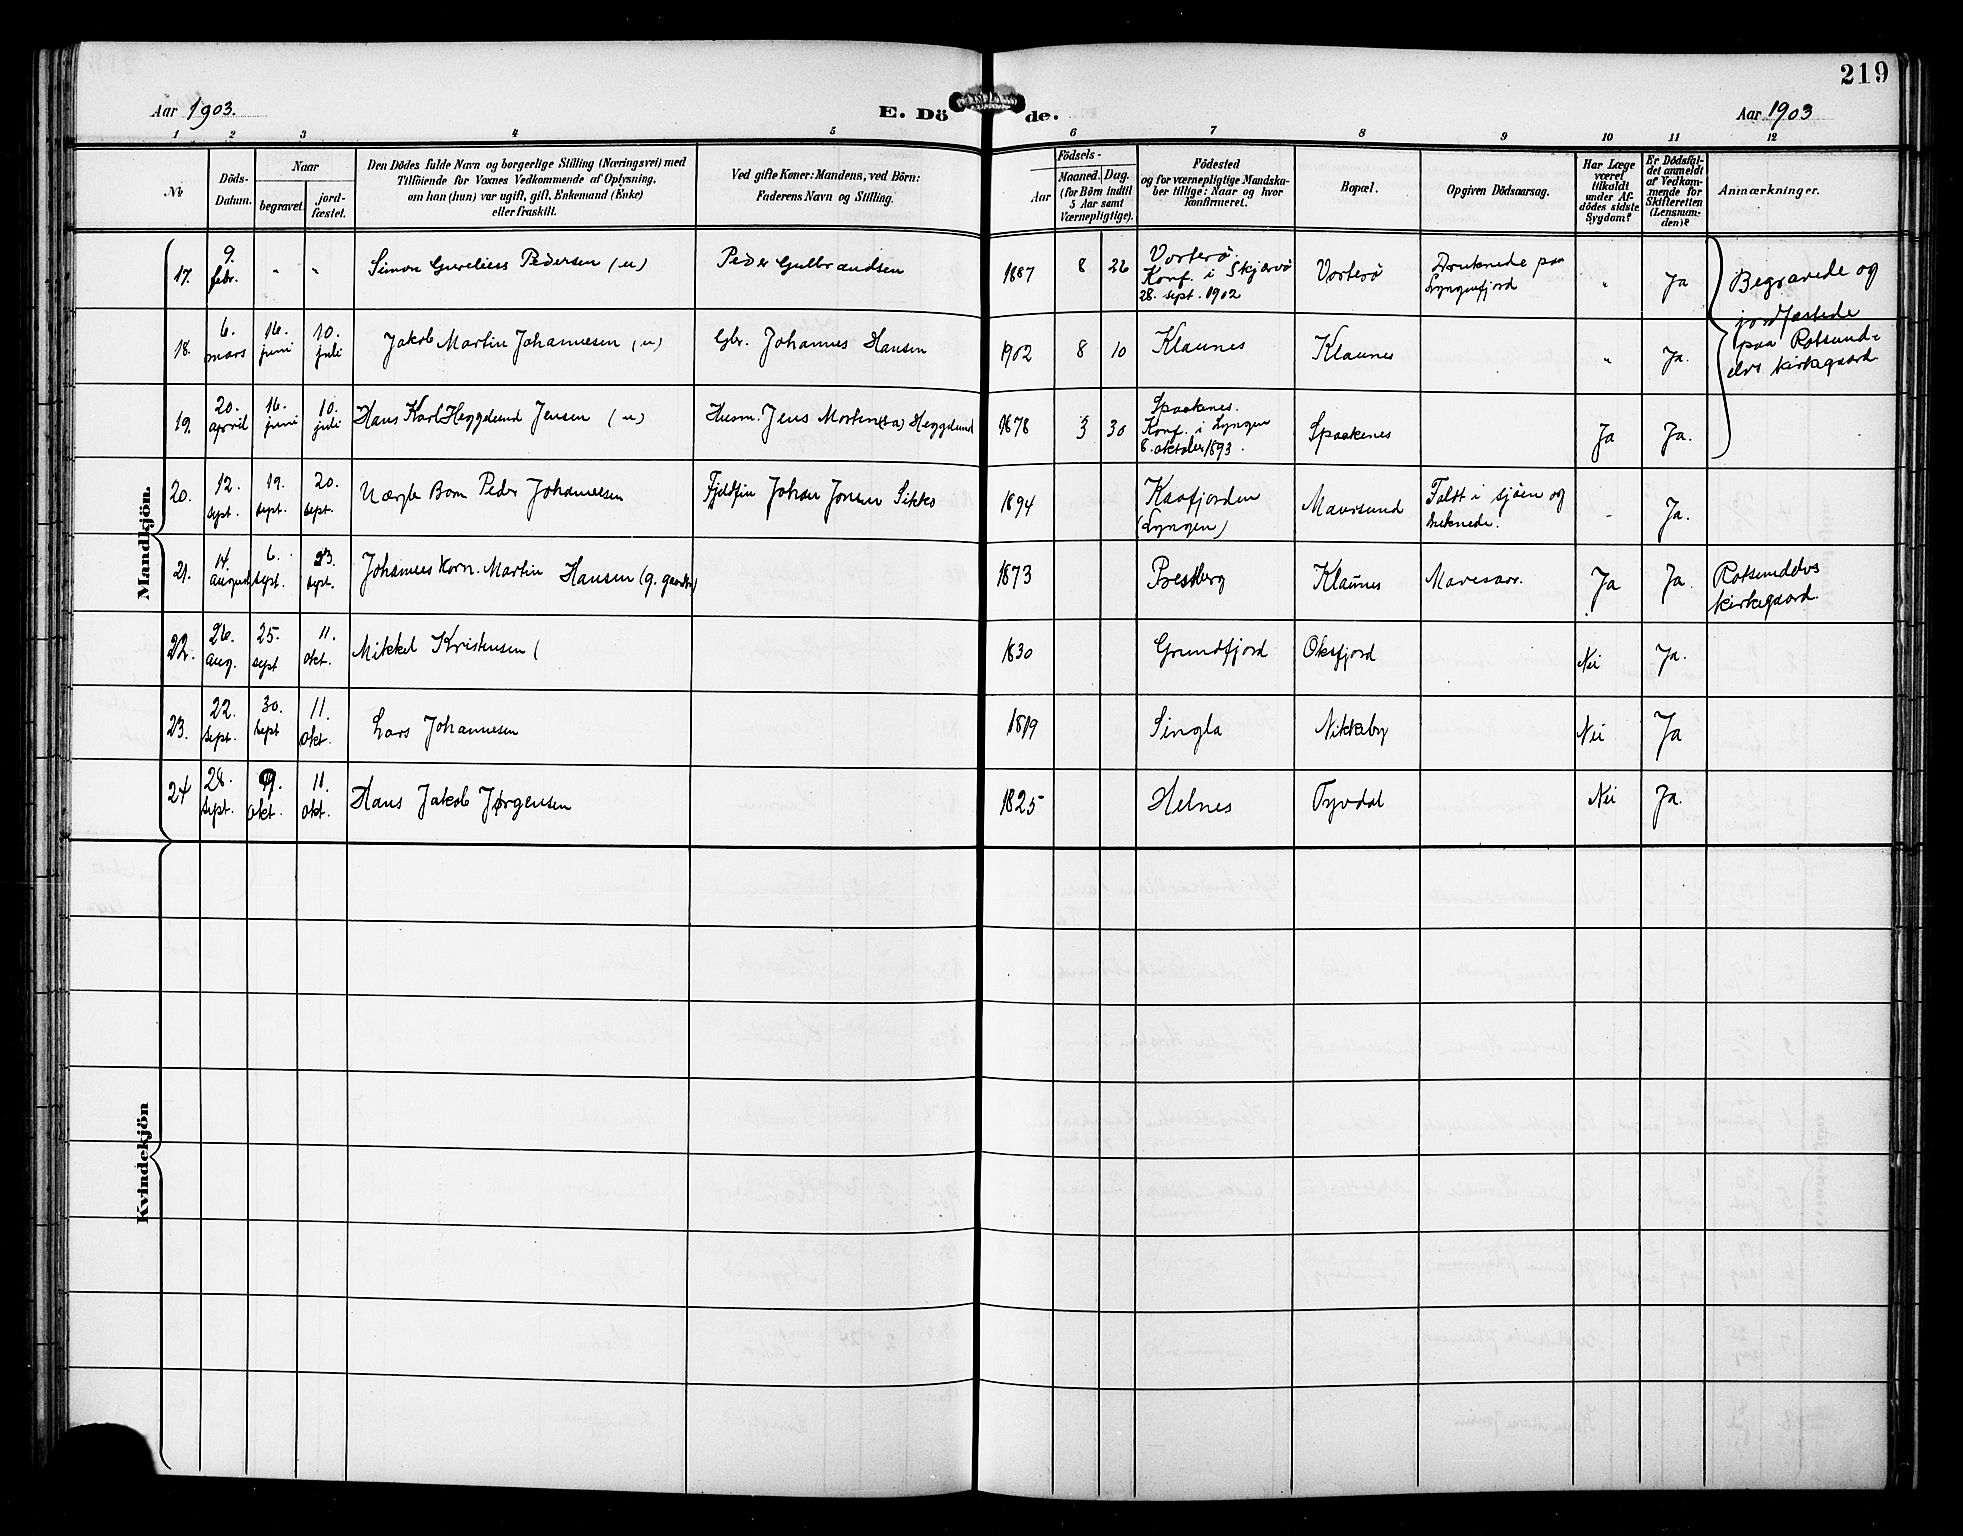 219
Aar 1903.
E. Döde.
Aar 1903
1 2 3 4 5 6 7 8 9 10 11 12
No
Döds-
Datum.
Naar
begravet.
jord-
fæstet.
Den Dödes fulde Navn og borgerlige Stilling (Næringsvei) med
Tilföiende for Voxnes Vedkommende af Oplysning,
om han (hun) var ugift, gift, Enkemand (Enke)
eller fraskilt.
Ved gifte Koner: Mandens, ved Börn:
Faderens Navn og Stilling.
Födsels-
Aar
Maaned. Dag.
(for Börn indtil
5 Aar samt
Værnepligtige).
Födested
og for værnepligtige Mandska-
ber tillige: Naar og hvor
konfirmeret.
Bopæl.
Opgiven Dödsaarsag.
Har Læge
været
tilkaldt
under Af-
dödes sidste
Sygdom?
Er Dödsfal-
det anmeldt
af Vedkom-
mende for
Skifteretten
(Lensman-
den)?
Anmærkninger.
Mandkjön.
17. 9. febr. " " Simon Pedersen (u) Peder Gulbrandsen 1887 8 26 Vorterø. Konf. i Skjærvø 28. sept. 1902 Vorterø Druknede paa Lyngenfjord " Ja
Begravede og
jordfæstede
paa Rotsund-
elvs kirkegaard
18. 6. mars 16. juni 10. juli Jakob Martin Johannesen (u) Gbr. Johannes Hansen 1902 8 10 Klaunes Klaunes " Ja.
19. 20. april 16. juni 10. juli Hans Karl Heggelund Jensen (u) Husm. Jens Mortens(sa) Heggelund 1878 3 30 Spaakenes. Konf. i Lyngen 8. oktober 1893. Spaakenes Ja Ja.
20. 12. sept. 19. sept. 20. sept. Værgle Barn Peder Johannesen Fjeldfin Johan Jonsen Sikko 1894 Kaafjorden (Lyngen) Maursund Faldt i sjøen og druknede. - Ja.
21. 14. august 6. sept. 23. sept. Johannes Korn. Martin Hansen (g. gaardbr) 1873 Prestberg Klaunes Mavesaar. Ja Ja. Rotsundelvs kirkegaard.
22. 26. aug. 25. sept 11. okt. Mikkel Kristensen ( 1830 Grundfjord Oksfjord Nei Ja.
23. 22. sept. 30. sept 11. okt. Lars Johannesen 1819 Singla Nikkeby Nei Ja
24 28. sept. 9. okt. 11. okt. Hans Jakob Jørgensen 1825 Helnes Tyvdal Nei Ja.
Kvindekjön